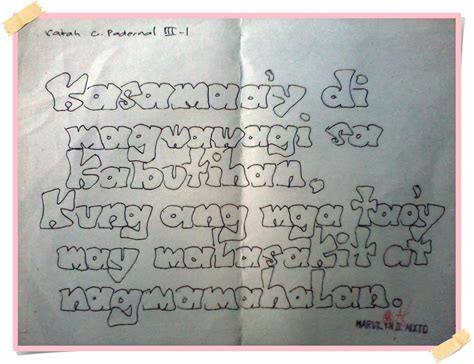 Katah G. Padernal III-1
Kasamaa'y di
magwawagi sa
Kabutihan,
Kung ang mga tao'y
may malasakit at
nagmamahalan.
MARVILYN B. MIXTO